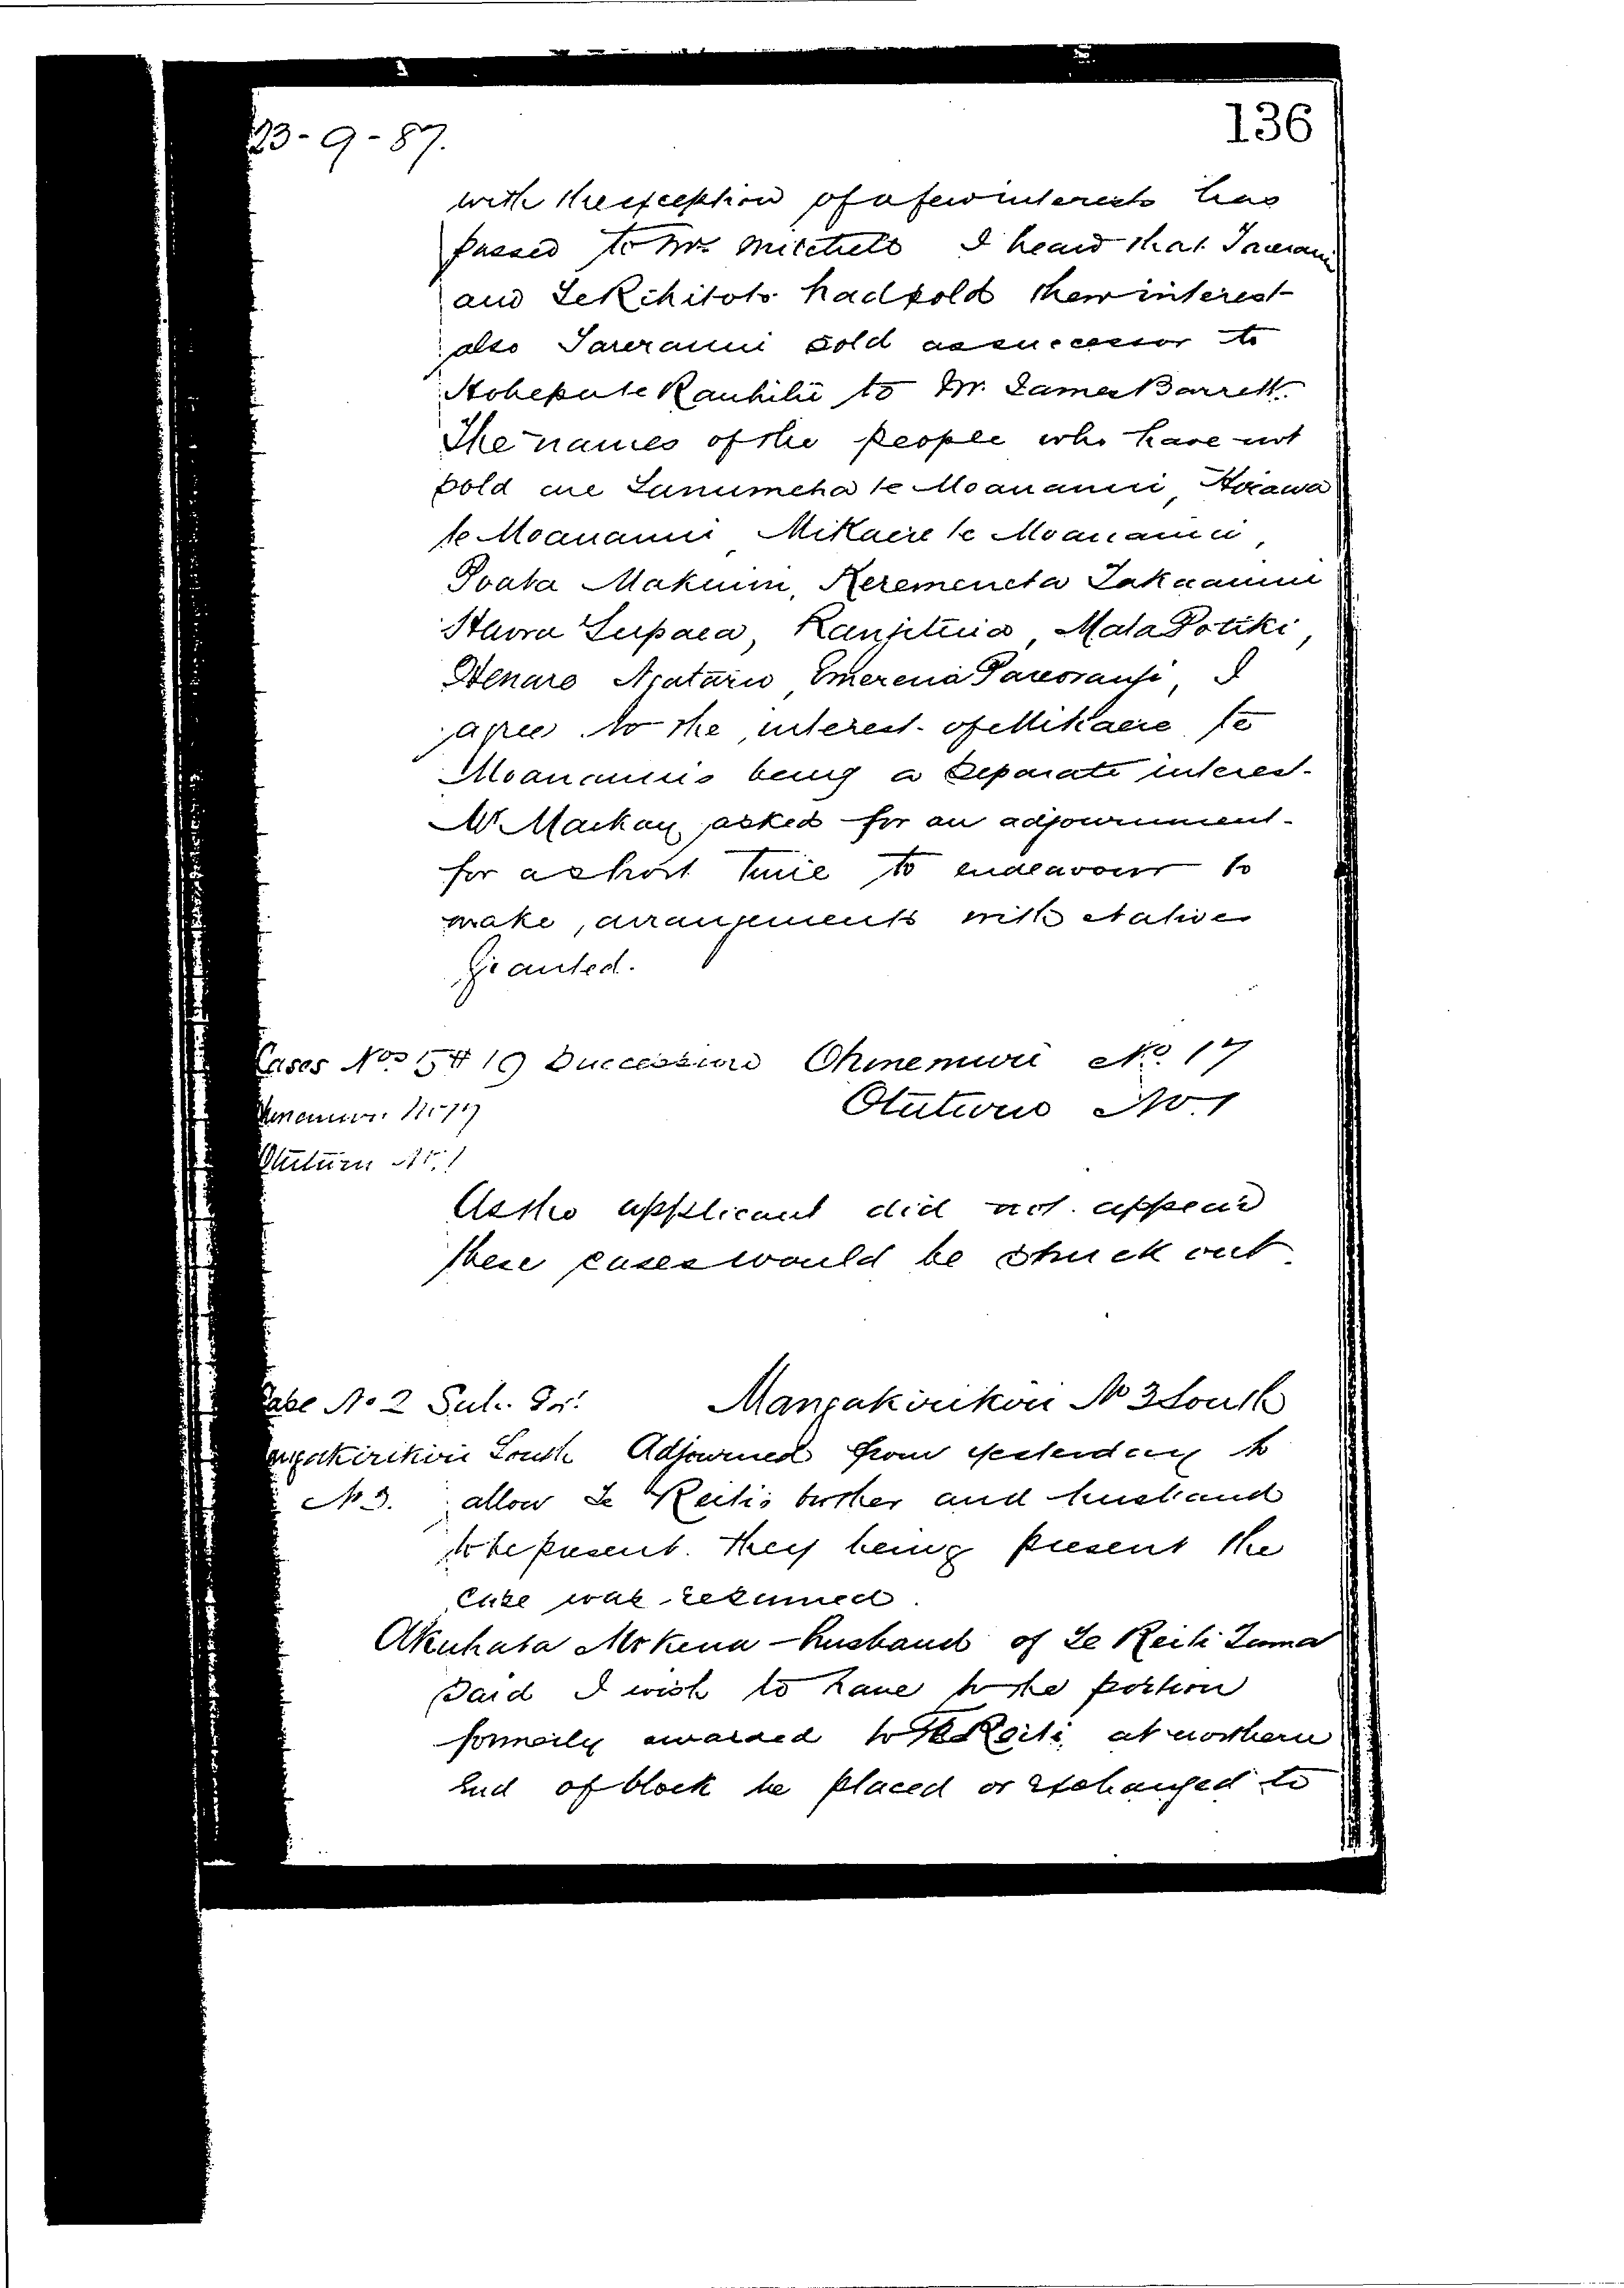 136
23-9-87.
with the exception of a few interests has
passed to Mr. Mitchell I heard that Tareranui
and Te Rihitoto had sold their interest
also Tareranui sold as successor to
Hohepute Rauhihi to Mr. James Barrett.
The names of the people who have not
sold are Tanumeha te Moananui, Hirawa
te Moananui, Mikaere te Moananui,
Poata Makuini, Keremeneta
Haora Tupaea, Rangituia, Mata Potiki,
Henare Ngatari, Emerena I
agree to the interest of Mikaere te
Moananuis being a Separate interest.
Mr Mackay asked for an adjournment
for a short time to endeavour to
make arrangements with Natives
Granted.
Cases Nos 15 & 19 Successions Ohinemuri No. 17
Otuturu No. 1
Ohinemuri No 17
Otuturu No. 1
As the applicant did not appear
these cases would be struck out.
Case No 2 Sub. Mangakirikiri No 3 South
Mangakirikiri South Adjourned from yesterday to
No 3. allow Te Reiti's brother and husband
to be present. They being present the
case was resumed.
Akuhata Mokena - husband of Te Reiti Tuma
Said I wish to have the portion
formerly awarded to Te Reiti at northern
End of block be placed or exchanged to